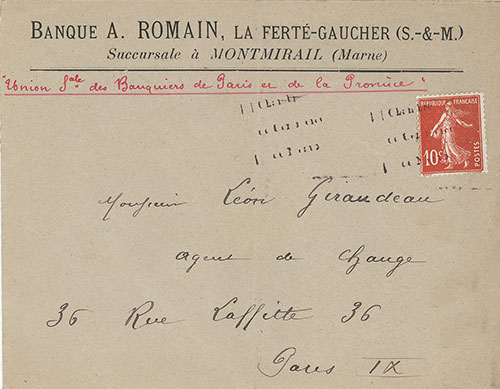 BANQUE A. ROMAIN, LA FERTÉ-GAUCHER (S.-&-M.)
Succursale à MONTMIRAIL (Marne)
"Union Sale des Banquiers de Paris et de la Province"
REPUBLIQUE FRANÇAISE
10c
POSTES
Monsieur Léon Girandeau
Agent de Change
36 Rue Laffitte 36
Paris IX